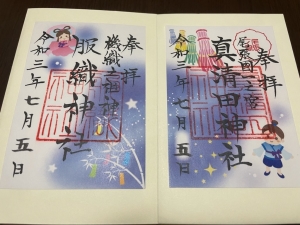 奉拝
尾張國一之宮
真清田神社
令和三年七月五日
奉拝
機織之祖神
服織神社
令和三年七月五日